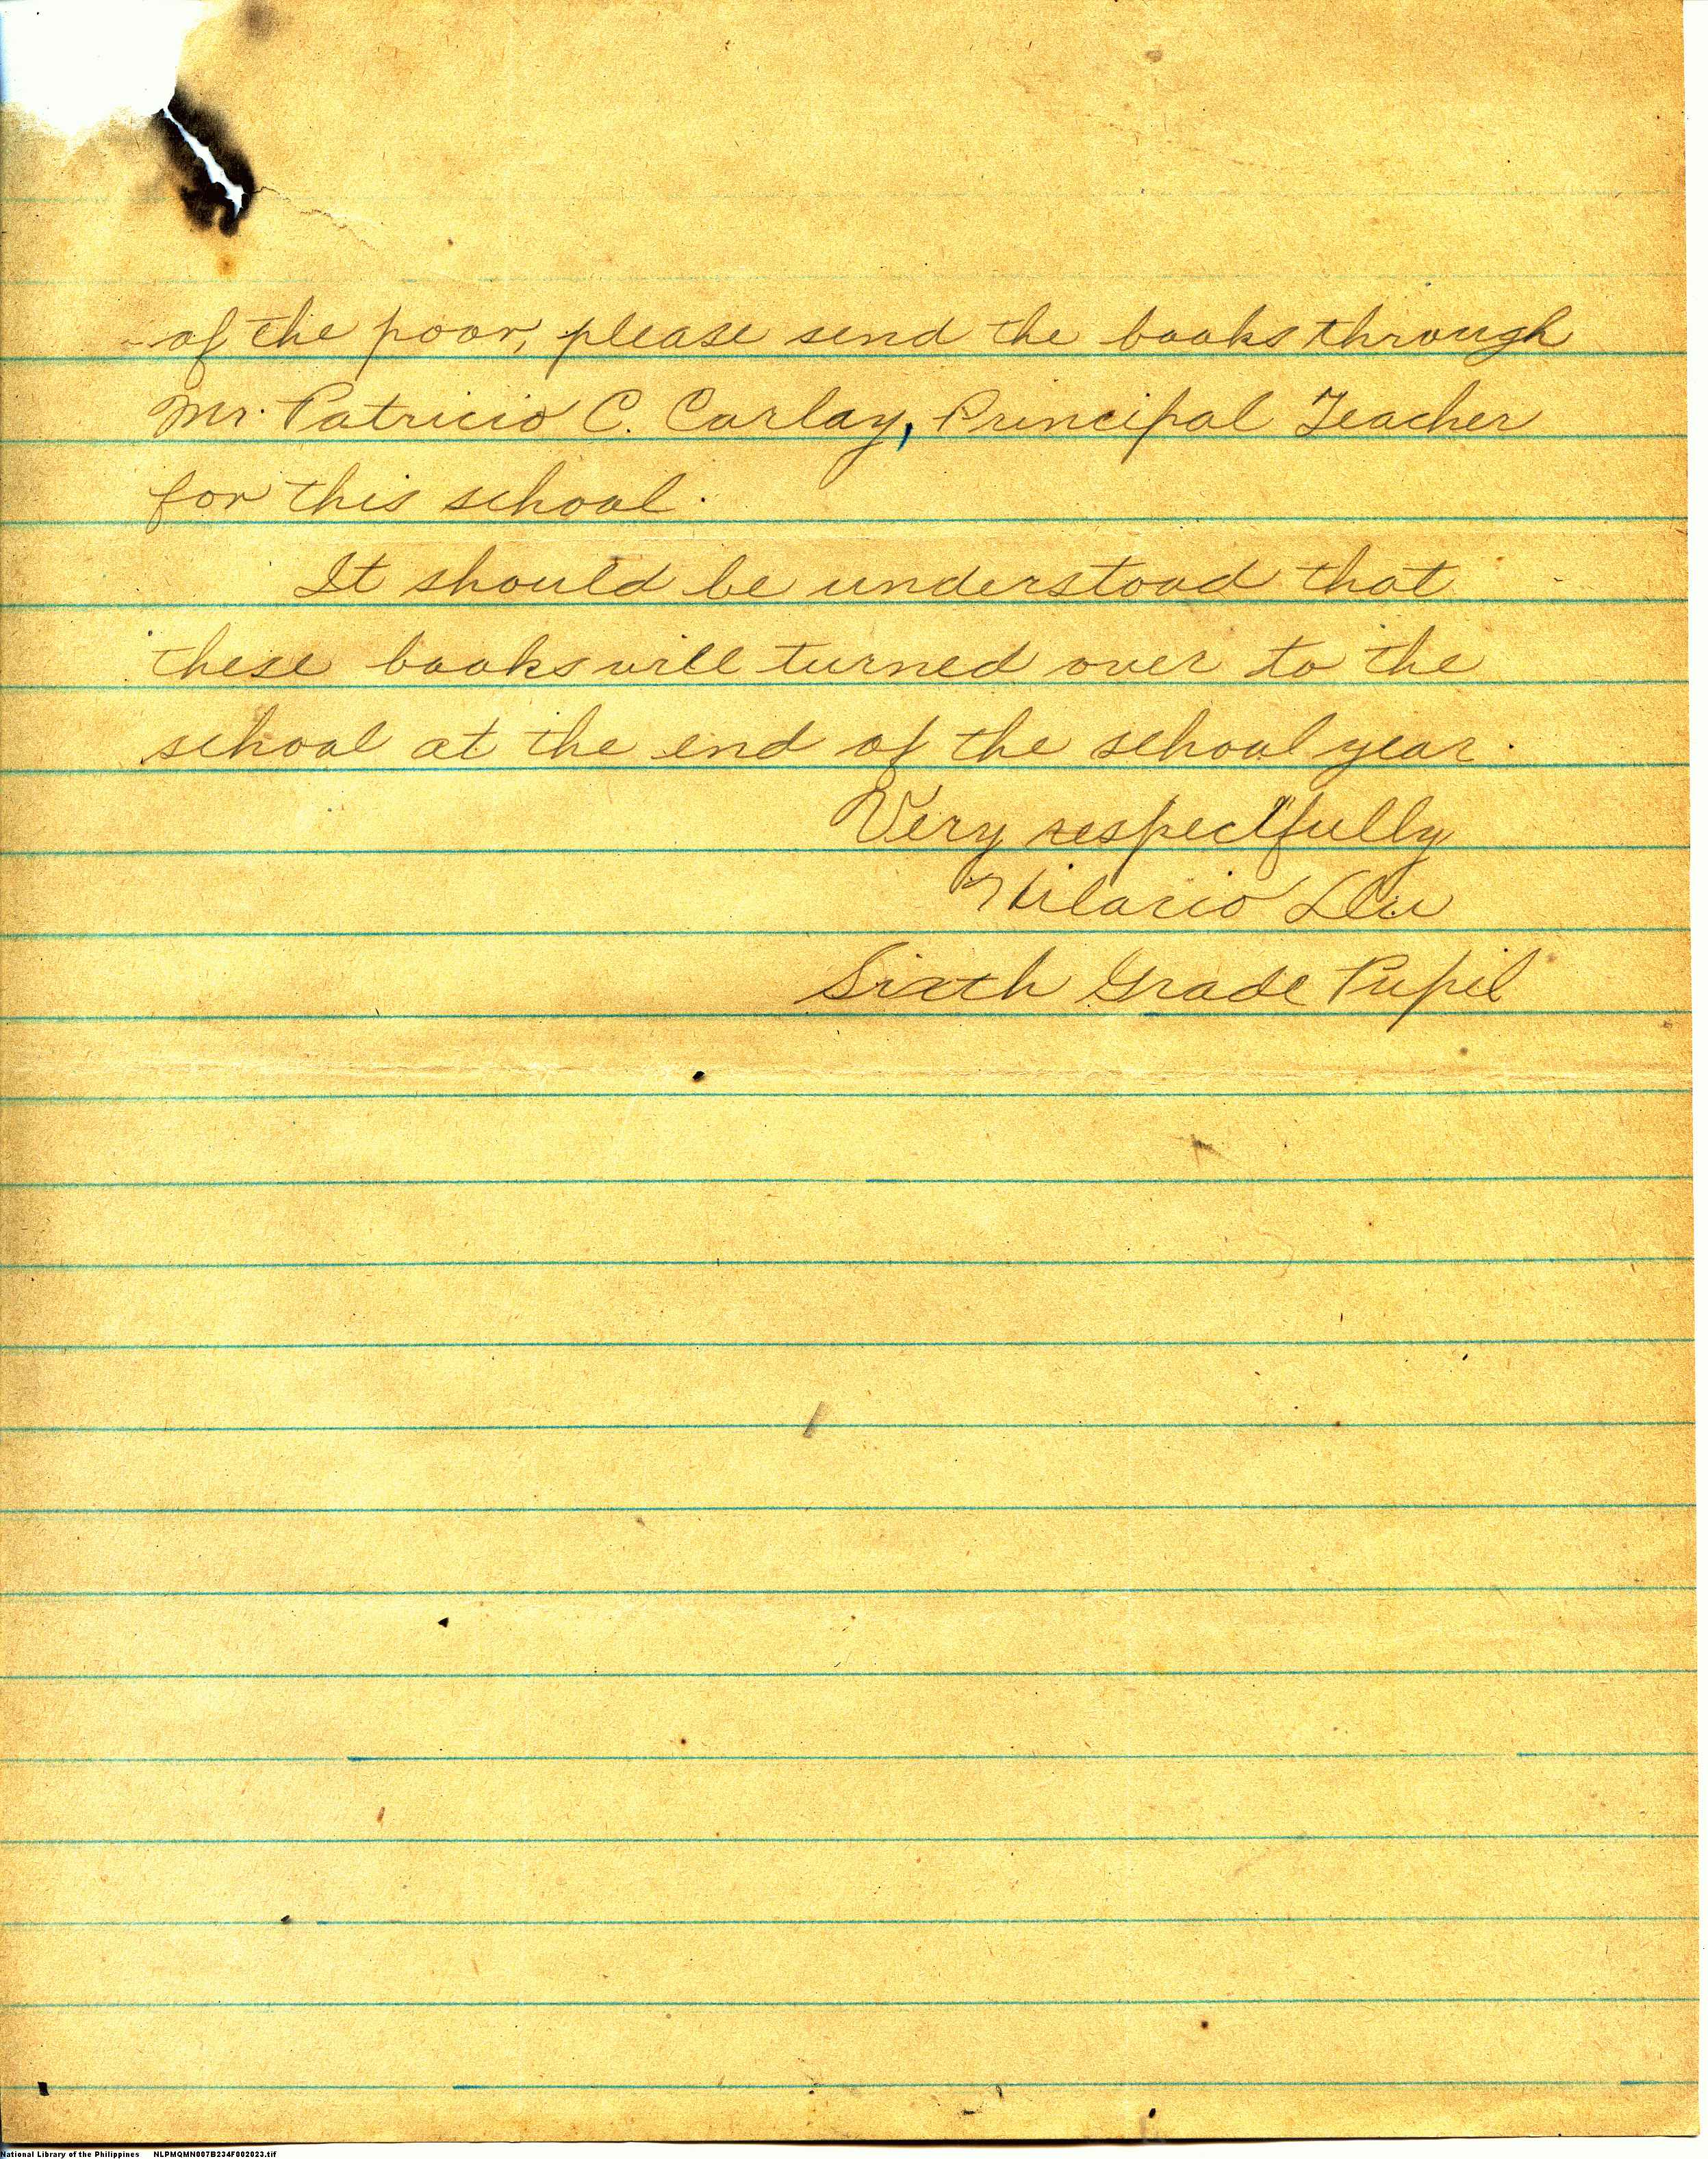 of the poor, please send the books through
Mr. Patricio C. Carlay, Principal Teacher
for this school.
It should be understood that
these books will turned over to the
school at the end of the school year.
Very respectfully
Hilario
Sixth Grade Pupil
National Library of the Philippines NLPMQMN007B234F002023.tif